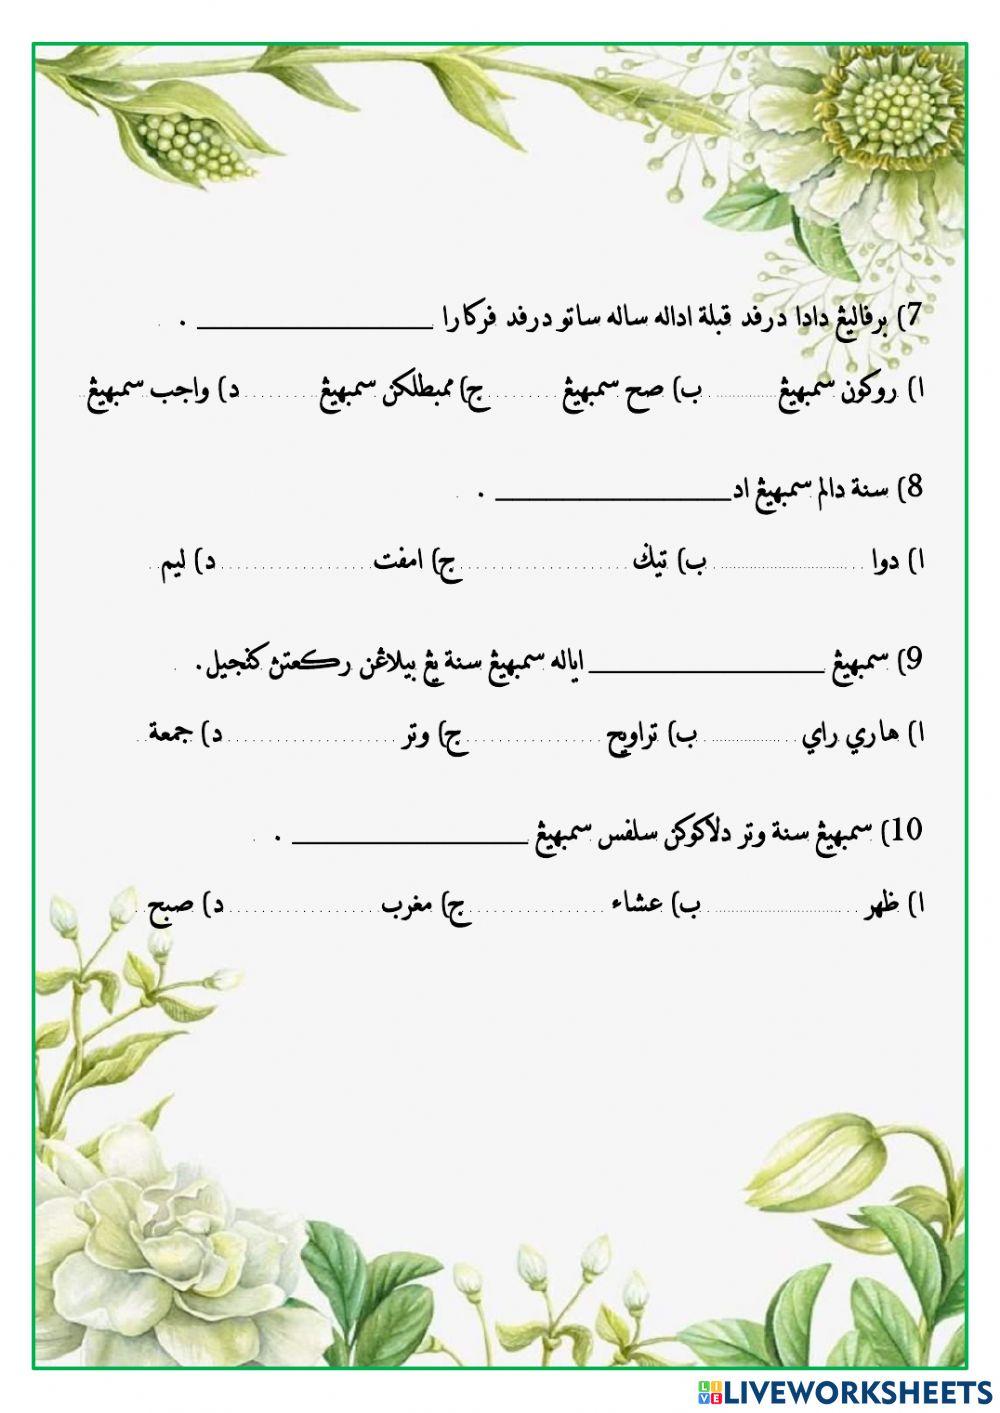 7) برفاليڠ دادا درفد قبلة اداله ساله ساتو درفد فركارا ________________ .
ا) روكون سمبهيڠ ب) صح سمبهيڠ ج) ممبطلكن سمبهيڠ د) واجب سمبهيڠ
8) سنة دالم سمبهيڠ اد________________ .
ا) دوا ب) تيݢ ج) امفت د) ليم
9) سمبهيڠ ________________ اياله سمبهيڠ سنة يڠ بيلاڠن ركعتڽ ڬنجيل.
ا) هاري راي ب) تراويح ج) وتر د) جمعة
10) سمبهيڠ سنة وتر دلاكوكن سلفس سمبهيڠ ________________ .
ا) ظهر ب) عشاء ج) مغرب د) صبح
LIVEWORKSHEETS